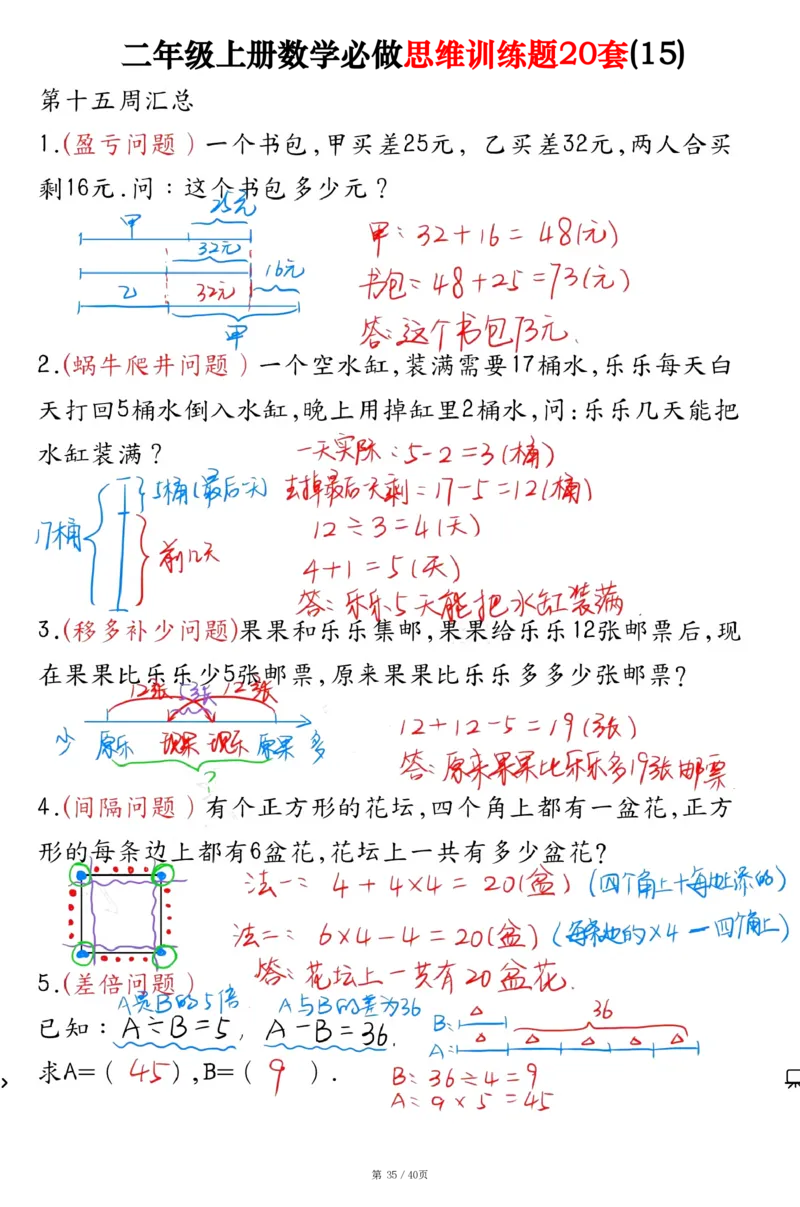 二年级上册数学必做思维训练题20套(15)
第十五周汇总
1.(盈亏问题）一个书包,甲买差25元, 乙买差32元,两人合买
剩16元.问：这个书包多少元？
25元
甲
32元
16元
乙 32元
甲
甲：32+16=48(元)
书包：48+25=73(元)
答：这个书包73元.
2.(蜗牛爬井问题）一个空水缸,装满需要17桶水,乐乐每天白
天打回5桶水倒入水缸,晚上用掉缸里2桶水,问:乐乐几天能把
水缸装满？
一天实际：5-2=3(桶)
5桶(最后一天)
去掉最后一天剩：17-5=12(桶)
17桶
前几天
12÷3=4(天)
4+1=5(天)
答：乐乐5天能把水缸装满
3.(移多补少问题)果果和乐乐集邮,果果给乐乐12张邮票后,现
在果果比乐乐少5张邮票,原来果果比乐乐多多少张邮票?
12张 5张 12张
少 原乐 现果 现乐 原果 多
?
12+12-5=19(张)
答：原来果果比乐乐多19张邮票
4.(间隔问题）有个正方形的花坛,四个角上都有一盆花,正方
形的每条边上都有6盆花,花坛上一共有多少盆花?
法一：4+4×4=20(盆)(四个角上+每边添的)
法二：6×4-4=20(盆)(每条边的×4-四个角上)
答：花坛上一共有20盆花.
5.(差倍问题）
A是B的5倍 A与B的差为36
已知：A÷B=5, A-B=36.
B:
36
A:
求A=( 45 ),B=( 9 ).
B：36÷4=9
A：9×5=45
第 35 / 40页